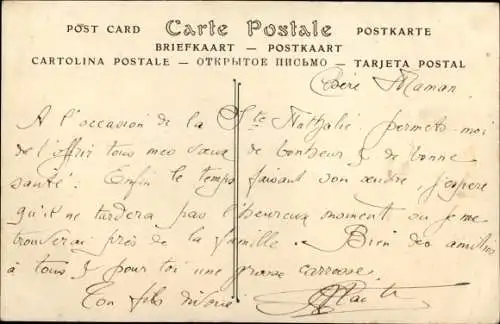 POST CARD Carte Postale POSTKARTE
BRIEFKAART — POSTKAART
CARTOLINA POSTALE — ОТКРЫТОЕ ПИСЬМО — TARJETA POSTAL
Chère Maman
A l'occasion de la Ste Nathalie permets-moi
de l'offrir tous mes vœux de bonheur & de bonne
santé. Enfin le temps faisant son œuvre, j'espère
qu'il ne tardera pas l'heureux moment où je me
trouverai près de la famille. Bien des amitiés
à tous & pour toi une grosse carresse
Ton fils dévoué